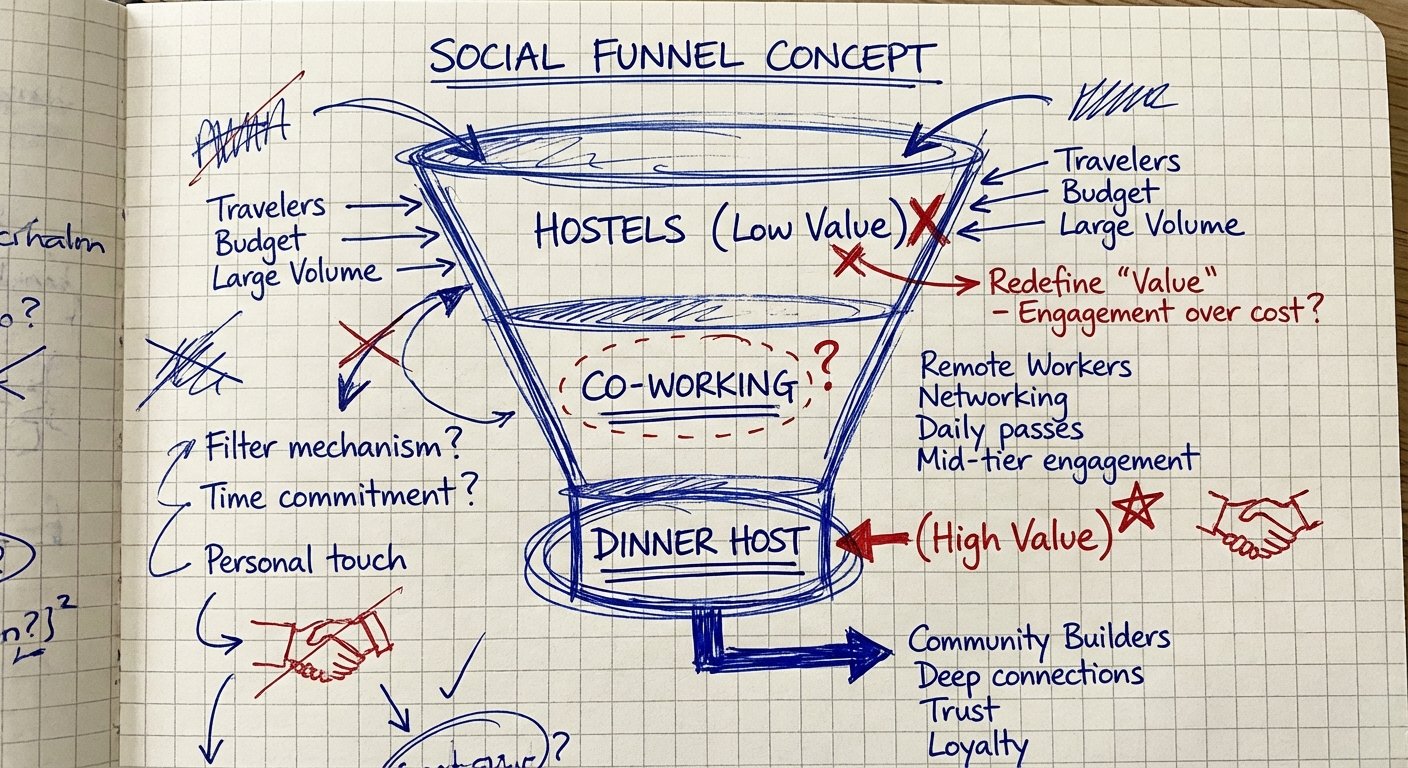 SOCIAL FUNNEL CONCEPT
Travelers
Budget
Large Volume
HOSTELS (Low Value)
Travelers
Budget
Large Volume
Redefine "Value"
- Engagement over cost?
CO-WORKING ?
Remote Workers
Networking
Daily passes
Mid-tier engagement
Filter mechanism?
Time commitment?
Personal touch
DINNER HOST
(High Value)
Community Builders
Deep connections
Trust
Loyalty